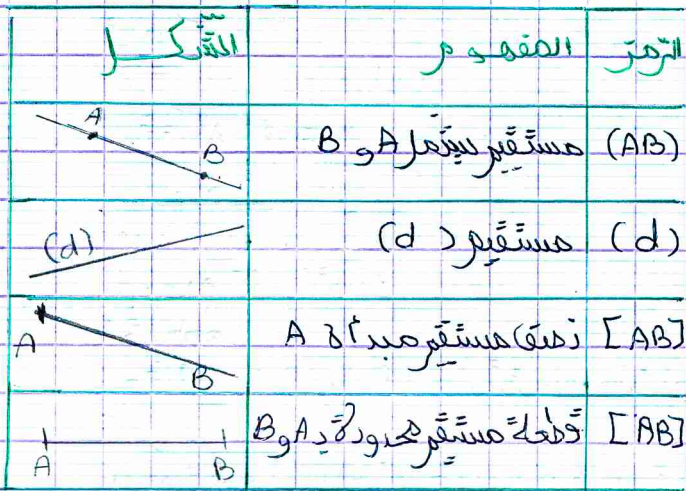 الرمز المفهوم الشكل
(AB) مستقيم يشمل A و B
A
B
(d) مستقيم (d)
(d)
[AB] نصف مستقيم مبدأه A
A
B
[AB] قطعة مستقيم محدودة بـ A و B
A B